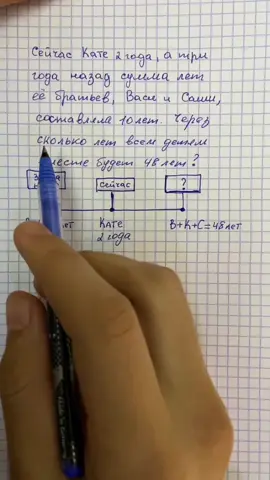 Сейчас Кате 2 года, а три
года назад сумма лет
её братьев, Васи и Саши,
составляла 10 лет. Через
сколько лет всем детям
вместе будет 48 лет?
сейчас
?
лет
Кате
2 года
В+К+С=48 лет